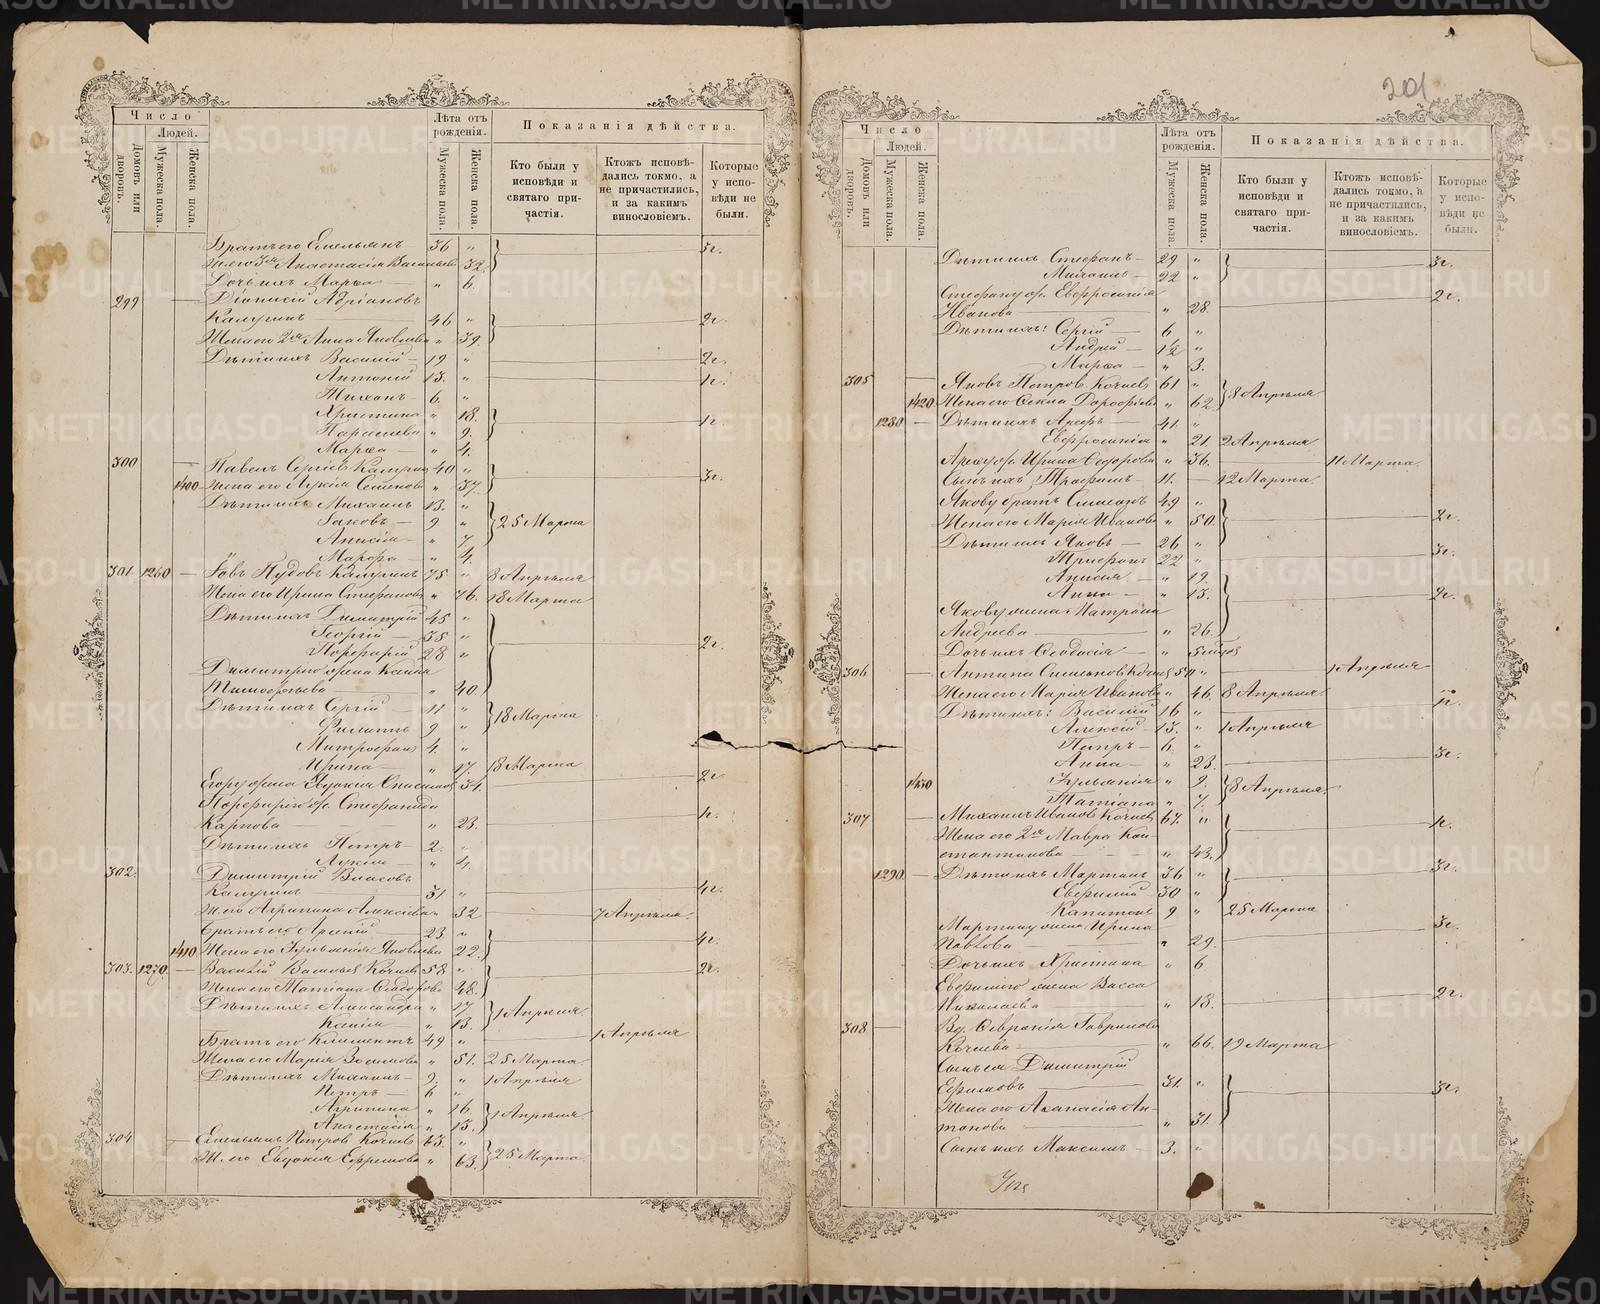 201
Число
Людей.
Домовъ или дворовъ.
Мужеска пола.
Женска пола.
Лѣта отъ рожденія.
Мужеска пола.
Женска пола.
Показанія дѣйства.
Кто были у исповѣди и святаго причастія.
Ктожъ исповѣдались токмо, а не причастились, и за какимъ винословіемъ.
Которые у исповѣди не были.
Братъ его Емельянъ 36 "
Анастасія 32
Дочь ихъ Марѳа " 6.
299 Діонисій Адріановъ
Калугинъ 46 " 2г.
Жена его 2я Анна Яковлева " 39.
Дѣти ихъ Василій 19 " 2г.
Антоній 13. " 1г.
Тихонъ 6. "
Христина " 18. 1г.
Параскева " 9.
Марѳа " 4.
300 Павелъ Сергіевъ 40 " 3г.
1400 Жена его Лукія Семенова " 37.
Дѣти ихъ Михаилъ 13. "
Іаковъ 9 " 25 Марта
Анисія " 7
" 4.
301. 1260 Іовъ Пудовъ Калугинъ 75 " 8 Апрѣля
Жена его Ирина Стефанова " 76. 18 Марта
Дѣти ихъ Димитрій 45 "
Георгій 35 "
Порфирій 28 " 2г.
Димитрію жена
Тимофеева " 40
Дѣти ихъ Сергій 11 "
Филиппъ 9 " 18 Марта
Митрофанъ 4. "
Ирина " 17 18 Марта
Егору жена Евдокія 34. 2г
Порфирію ж. Стефанида
Карпова " 23. 1г.
Дѣти ихъ Петръ 2. "
Лукія " 4.
302. Димитрій Власовъ
Калугинъ 51 " 4г.
Ж. его Агрипина Алексіева " 32 7 Апрѣля.
Братъ его Арсеній 23 "
1410 Жена его Іуліанія Яковлева 22. 4г.
303. 1270. Василій Кочневъ 58 " 2г.
Жена его Татіана Ѳеодорова 48.
Дѣти ихъ Александра " 17 1 Апрѣля.
Ксенія " 13.
Братъ его Климентъ 49 " 1 Апрѣля
Жена его Марія Зосимова " 51. 25 Марта
Дѣти ихъ Михаилъ 9. " 1 Апрѣля
Петръ 6 "
Агрипина " 16. 1 Апрѣля
Анастасія " 13.
304 Емельянъ Петровъ Кочневъ 63. "
Ж. его Евдокія Ефремова " 63. 25 Марта
Число
Людей.
Домовъ или дворовъ.
Мужеска пола.
Женска пола.
Лѣта отъ рожденія.
Мужеска пола.
Женска пола.
Показанія дѣйства.
Кто были у исповѣди и святаго причастія.
Ктожъ исповѣдались токмо, а не причастились, и за какимъ винословіемъ.
Которые у исповѣди не были.
Дѣти ихъ Стефанъ 29 " 3г.
Михаилъ 22 "
Стефану ж. Евфросинія 2г.
Иванова " 28.
Дѣти ихъ: Сергій 6 "
Андрей 1½ "
Марѳа " 3.
305 Яковъ Петровъ Кочневъ 61 " 8 Апрѣля
1420 Жена его Ѳекла Дорофіева " 62
1280 Дѣти ихъ Ареѳъ 41. "
Евфросинія " 21. 2 Апрѣля
Ареѳу ж. Ирина Ѳедорова " 36. 11 Марта.
Сынъ ихъ Трофимъ 11. 12 Марта.
Якову братъ Симеонъ 49 "
Жена его Марія Иванова " 50. 2г.
Дѣти ихъ Яковъ 26 " 3г.
Трифонъ 22 "
Анисія " 19.
Анна " 13. 2г.
Якову жена Матрона
Андреева " 26
Дочь ихъ Ѳеодосія "
306 Антипа Симеоновъ 50 " 1 Апрѣля
Жена его Марія Иванова " 46. 8 Апрѣля
Дѣти ихъ: Василій 16 "
Алексій 13. " 1 Апрѣля
Петръ 6. "
Анна " 23. 3г.
1430 Іуліанія " 9. 8 Апрѣля.
Татіана " 7.
307 Михаилъ Ивановъ Кочневъ 67. " 1г.
Жена его 2я Мавра Кон-
стантинова " 43.
1290 Дѣти ихъ Мартинъ 36 " 3г.
Евфимій 30 "
Капитонъ 9 " 25 Марта
Мартину жена Ирина 3г.
Павлова " 29.
Дочь ихъ Христина " 6
Евфимію жена Васса
Николаева " 18. 2г.
308 Вд. Евфросинія Гаврилова
Кочнева " 66. 19 Марта
Сынъ ея Димитрій
Ефимовъ 31. " 3г.
Жена его Аѳанасія Ан-
тонова " 31.
Сынъ ихъ Максимъ 3. "
METRIKI.GASO-URAL.RU